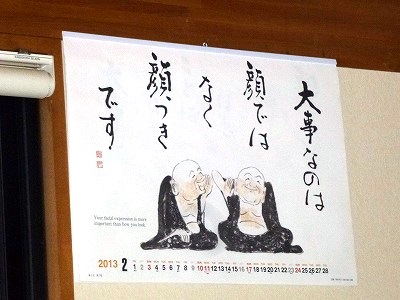 大事なのは
顔では
なく
顔つき
です
Your facial expression is more
important than how you look.
2013 2 1 2 3 4 5 6 7 8 9 10 11 12 13 14 15 16 17 18 19 20 21 22 23 24 25 26 27 28